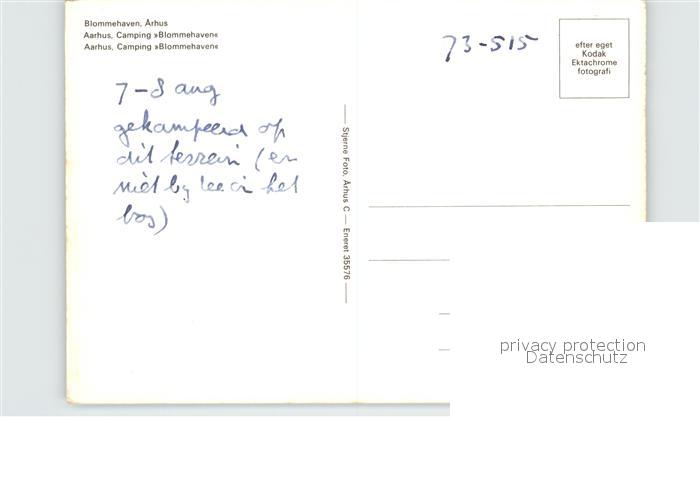 Blommehaven, Århus
Aarhus, Camping »Blommehaven«
Aarhus, Camping »Blommehaven«
73-515
efter eget
Kodak
Ektachrome
fotografi
7-8 aug
gekampeerd op
dit terrein (en
niet by in het
bos)
Stjerne Foto, Århus C — Eneret 35576
privacy protection
Datenschutz